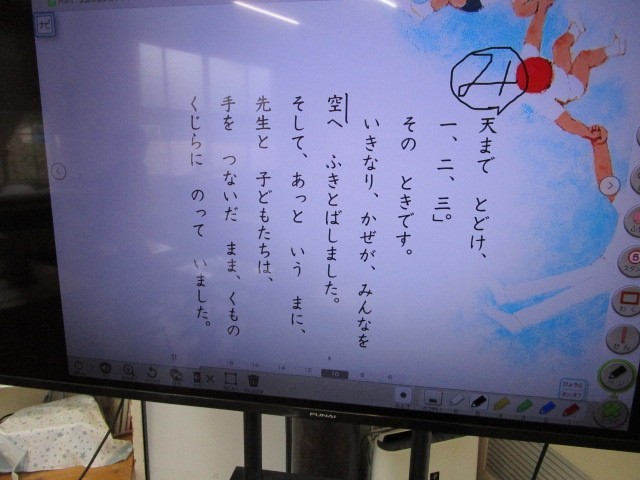 天まで　とどけ、
一、二、三。」
その　ときです。
いきなり、かぜが、みんなを
空へ　ふきとばしました。
そして、あっと　いう　まに、
先生と　子どもたちは、
手を　つないだ　まま、くもの
くじらに　のって　いました。
ナビ
FUNAI